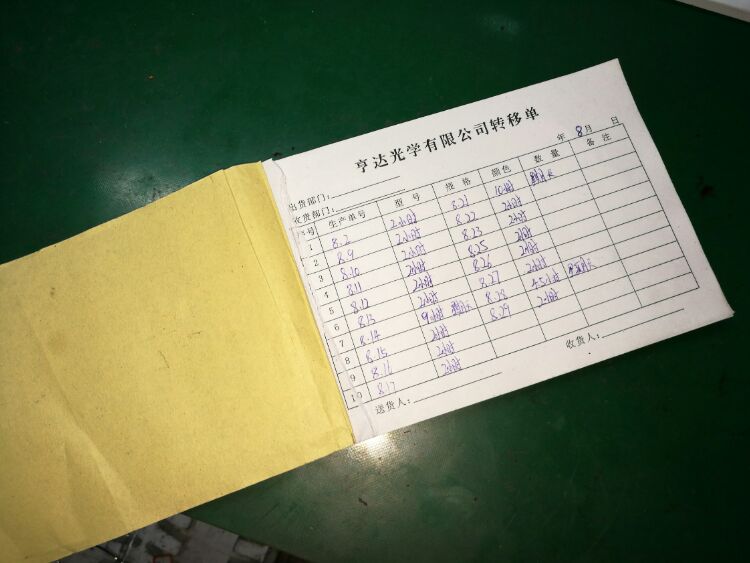 亨达光学有限公司转移单
年 8月 日
出货部门：
收货部门：
序号 生产单号 型号 规格 颜色 数量 备注
1 8.2 2小时 8.21 10小时
2 8.9 2小时 8.22 2小时
3 8.10 2小时 8.23 2小时
4 8.11 2小时 8.25 2小时
5 8.12 2小时 8.26 2小时
6 8.13 2小时 8.27 2小时
7 8.14 9小时 8.28 4.5小时
8 8.15 2小时 8.29 2小时
9 8.16 2小时
10 8.17 2小时
送货人： 收货人：